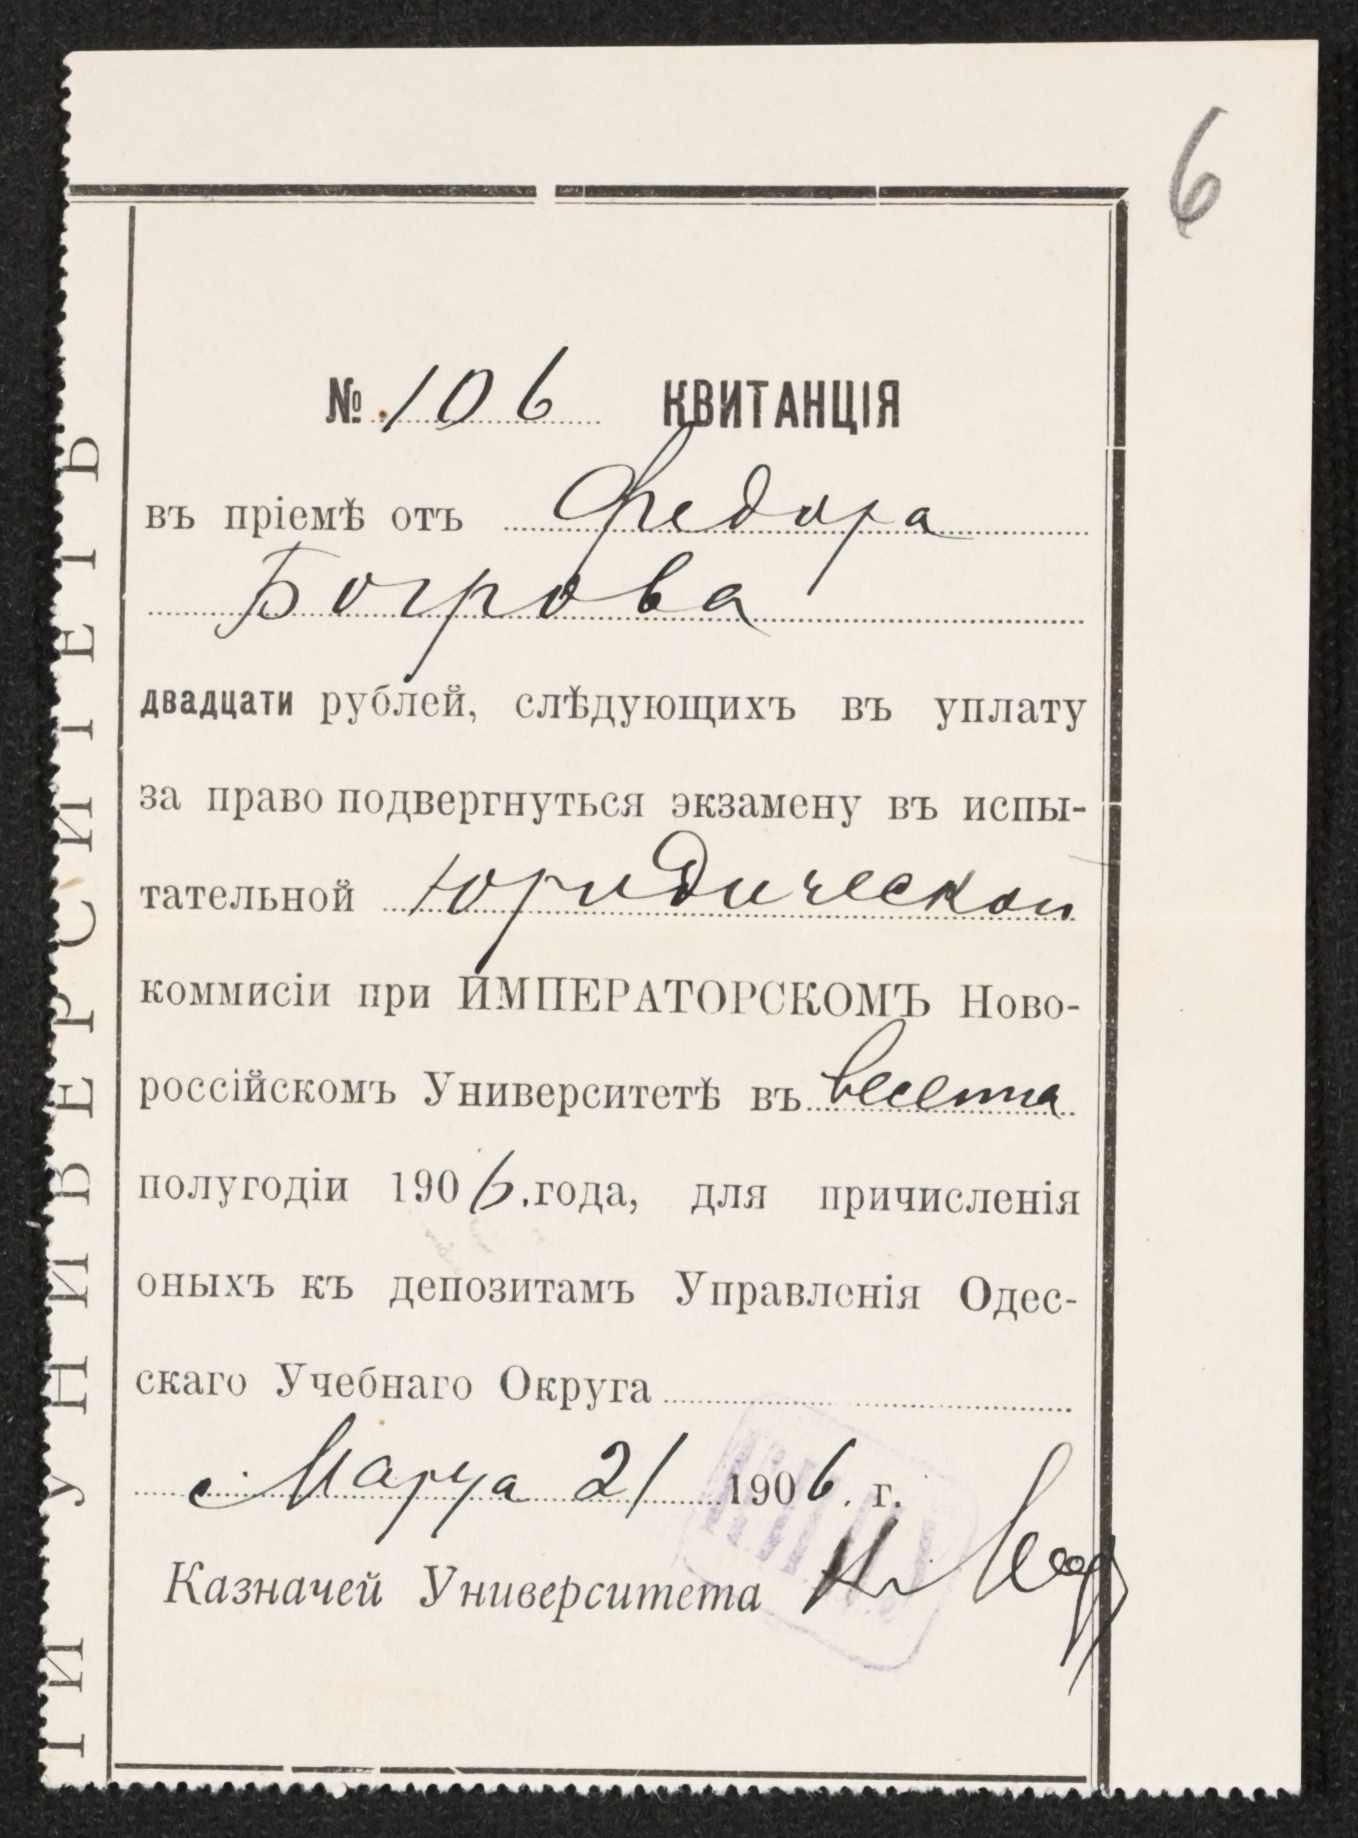 6
№ 106 КВИТАНЦІЯ
въ пріемѣ отъ Федора
Богрова
двадцати рублей, слѣдующихъ въ уплату
за право подвергнуться экзамену въ испы-
тательной юридической
коммисіи при ИМПЕРАТОРСКОМЪ Ново-
россійскомъ Университетѣ въ
полугодіи 1906. года, для причисленія
оныхъ къ депозитамъ Управленія Одес-
скаго Учебнаго Округа
Марта 21 1906. г.
Казначей Университета
УНИВЕРСИТЕТЪ